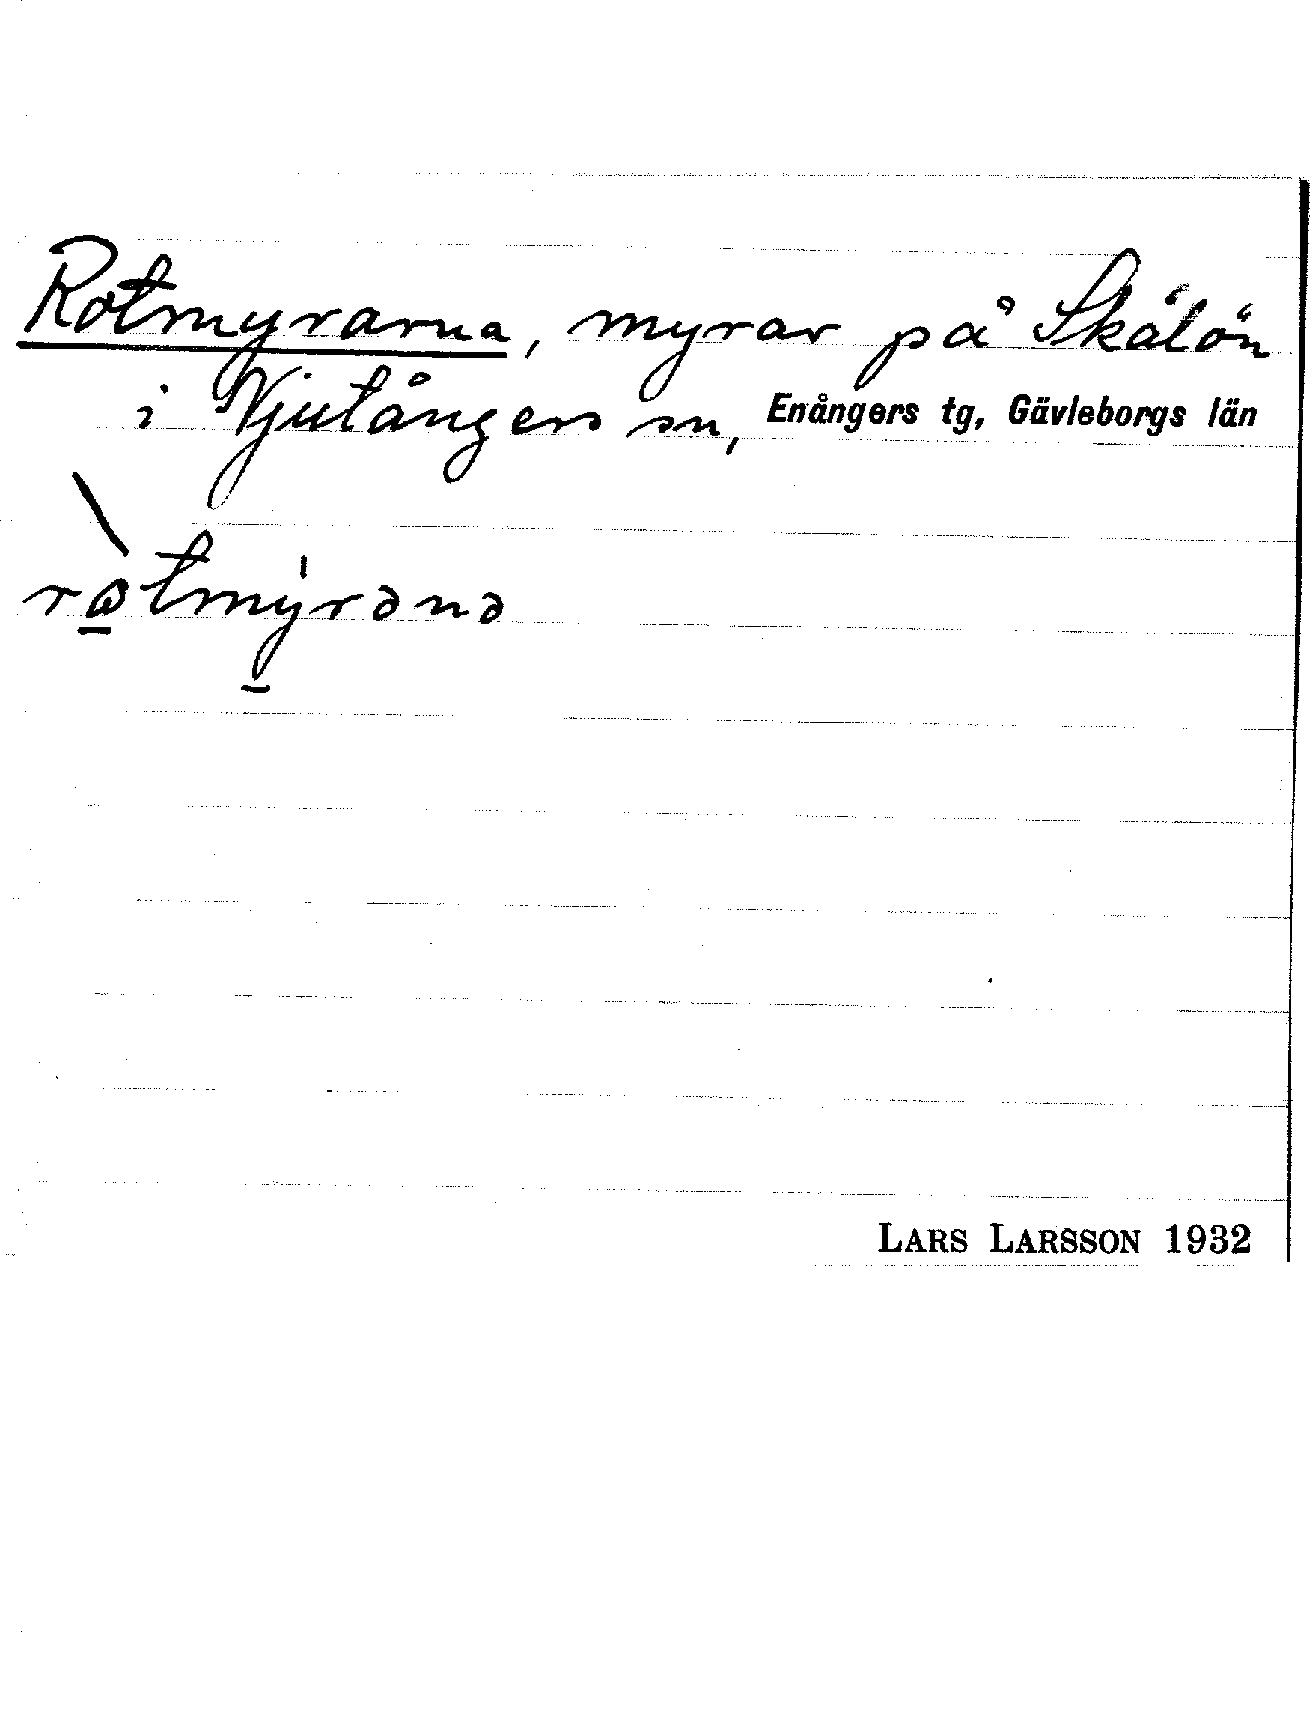 Rotmyrarna, myrar på Skålön
i Njutångers sn, Enångers tg, Gävleborgs län
LARS LARSSON 1932